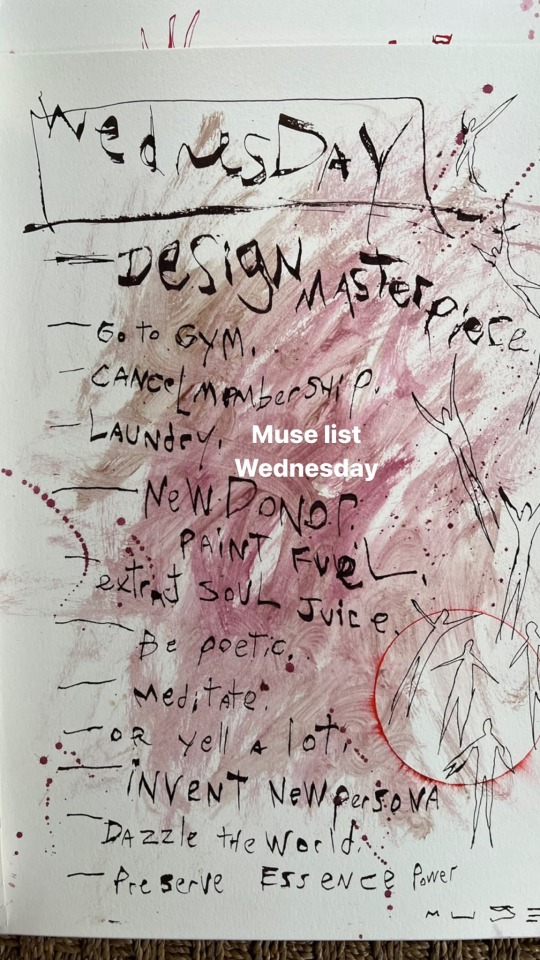 WednesDAY
— DESiGN MASTerpiece
— Go to GYM.
— CANCeL MeMberSHip.
— LAUNdry.
Muse list
Wednesday
— NeW DONOr.
PAiNT FUeL.
— extract SOUL Juice.
— Be poetic.
— Meditate.
— OR yell A lot.
— iNVENT NeW persoNA
— DAzzle the World.
— Preserve ESSENCE Power
MUSE